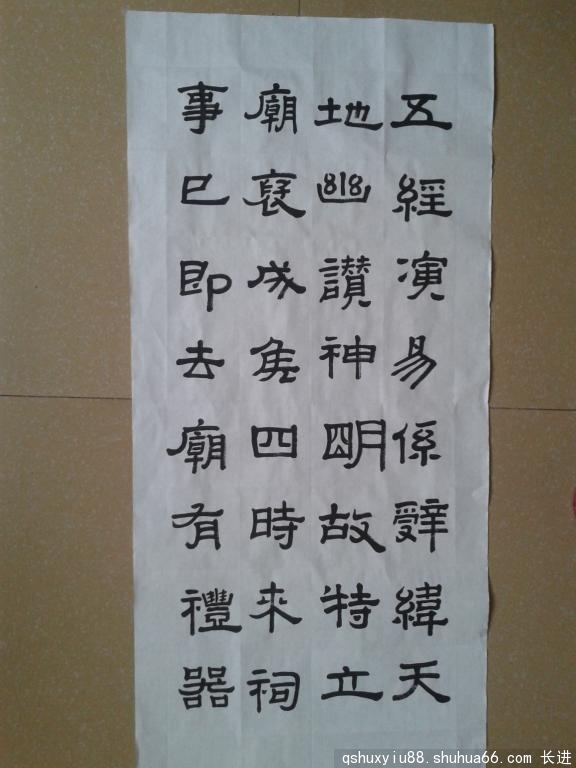 五經演易係辭緯天
地幽讃神明故特立
廟褒成侯四時来祠
事已即去廟有禮器
qshuxyiu88.shuhua66.com 长进